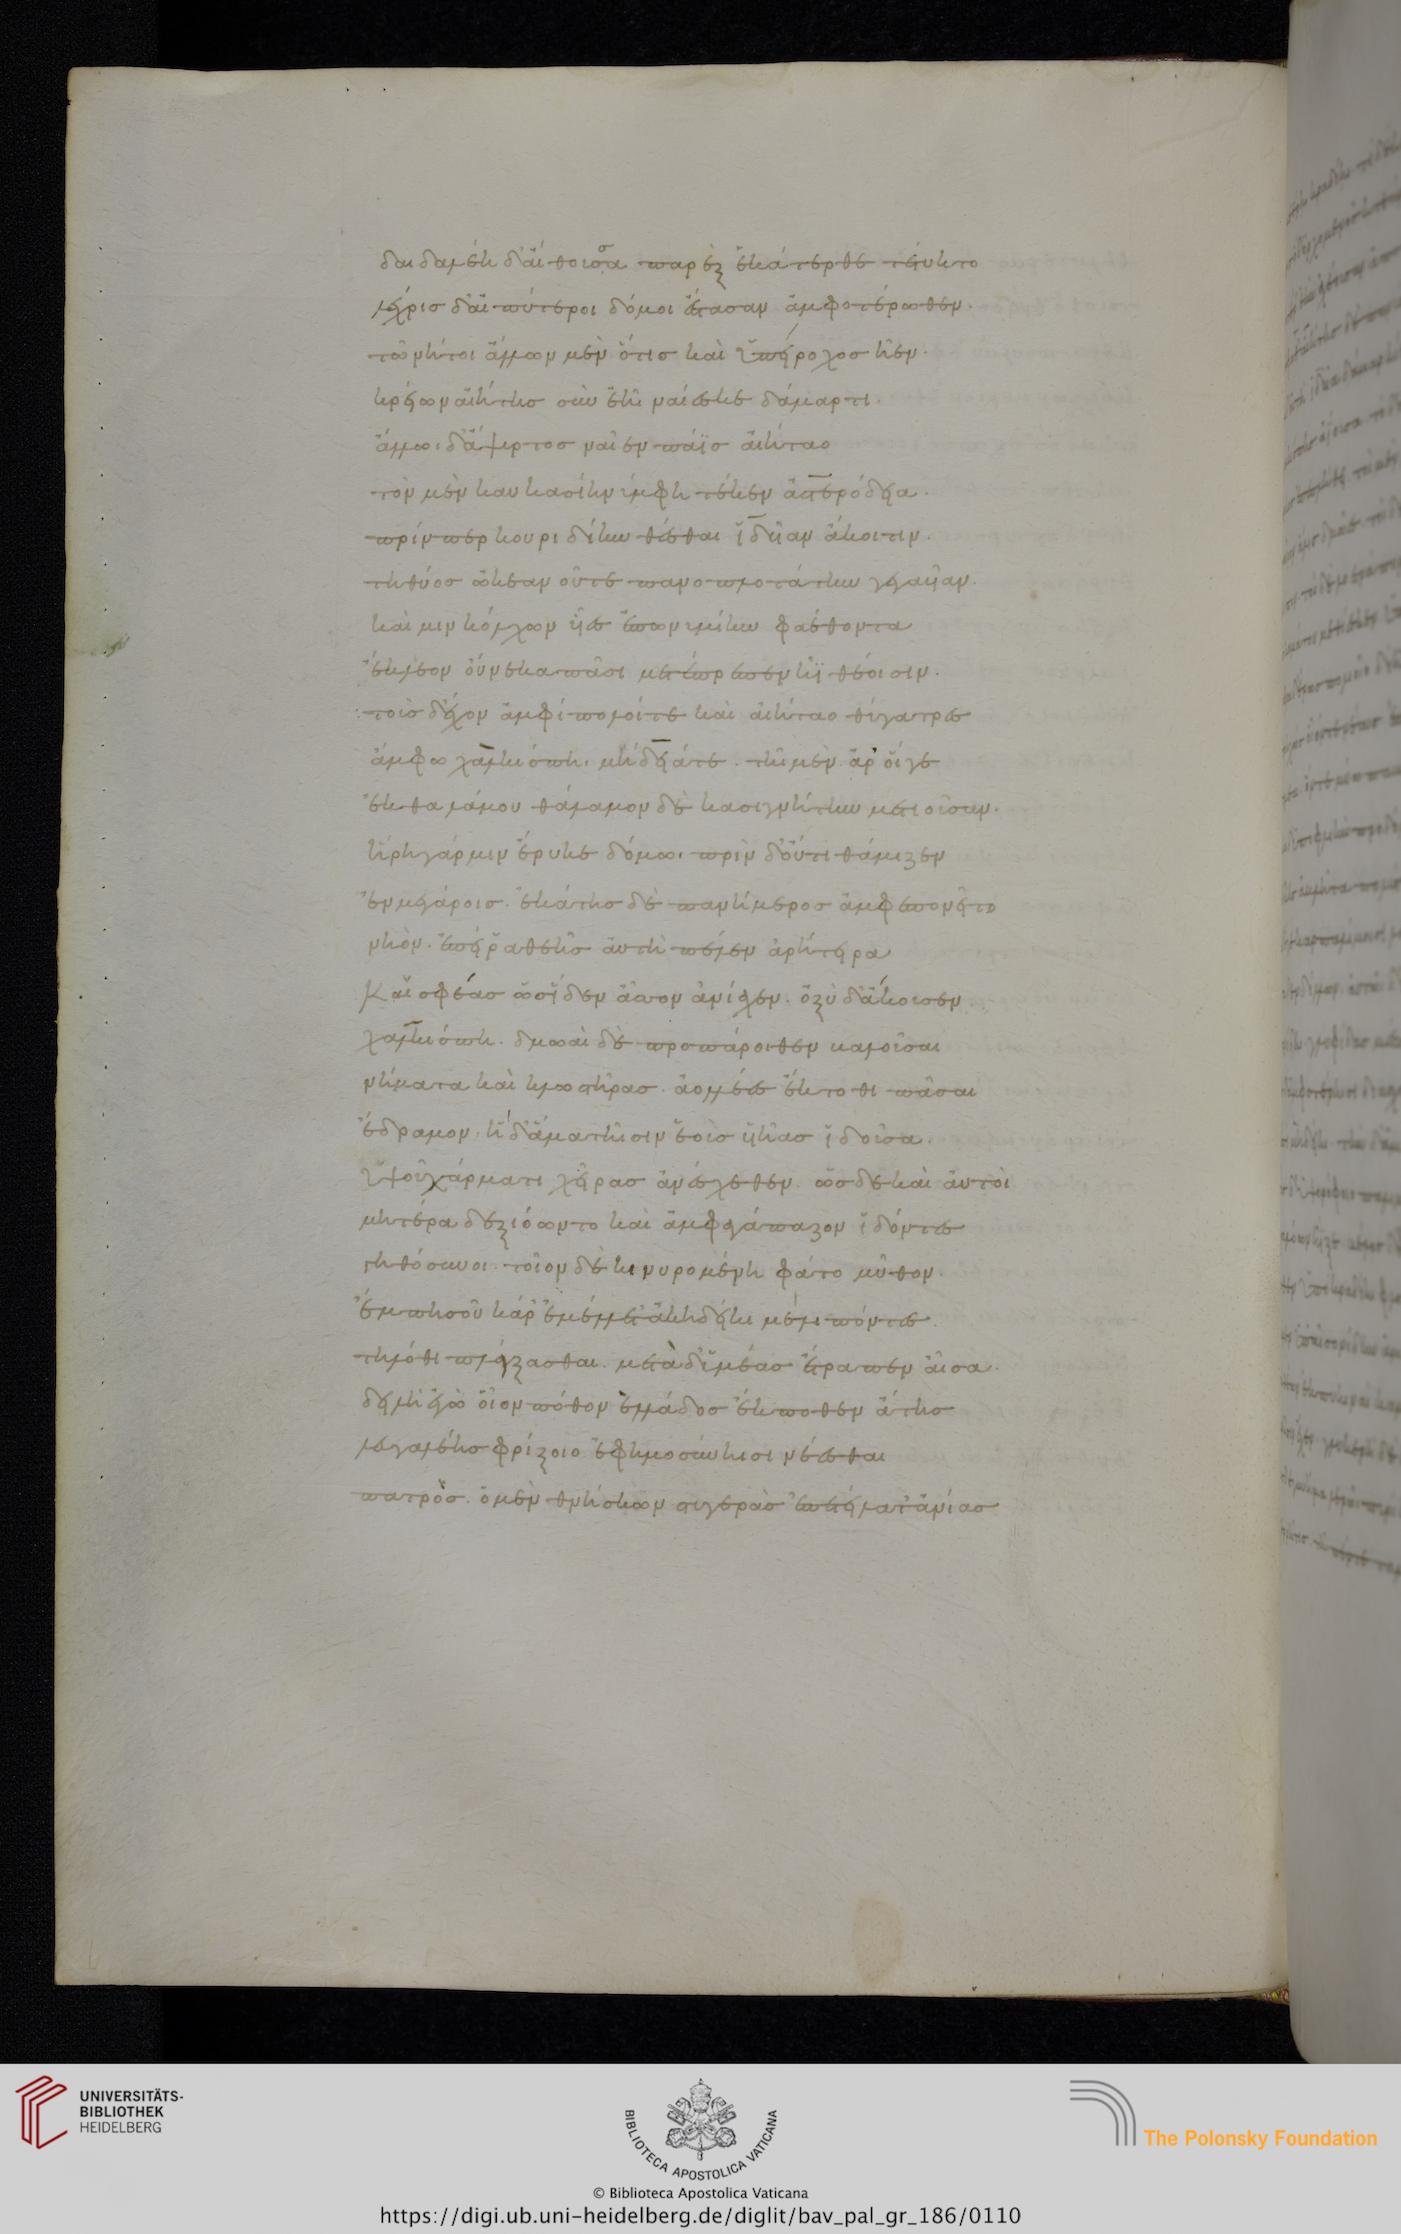 δαιδαλέη δ' αἴθουσα παρὲξ ἑκάτερθε τέτυκτο
λέχρις δ' αἰπύτεροι δόμοι ἕστασαν ἀμφοτέρωθεν.
τῶν ἤτοι ἄλλων μὲν ὅτις καὶ ὑπείροχος ἦεν.
κρείων αἰήτης σὺν ἑῇ ναίεσκε δάμαρτι.
ἄλλω δ' ἄψυρτος ναῖεν πάϊς αἰήταο
τὸν μὲν καυκασίη νύμφη τέκεν ἀστερόδεια.
πρίν περ κουριδίην θέσθαι ἰδυῖαν ἄκοιτιν.
τηθύος ὠκεανοῦ τε πανοπλοτάτην γεγαυῖαν.
καί μιν κόλχων υἷες ἐπωνυμίην φαέθοντα
ἔκλεον οὕνεκα πᾶσι μετέπρεπεν ἠϊθέοισιν.
τοὺς δ' ἔχον ἀμφίπολοί τε καὶ αἰήταο θύγατρες
ἄμφω χαλκιόπη, μήδειά τε. τὴν μὲν ἄρ' οἵγε
ἐκ θαλάμου θάλαμον δὲ κασιγνήτην μετιοῦσαν.
ἥρη γάρ μιν ἔρυκε δόμω. πρὶν δ' οὔτι θάμιζεν
ἐν μεγάροις. ἑκάτης δὲ πανήμερος ἀμφεπονεῖτο
νηὸν. ἐπεί ῥα θεῆς αὐτὴ πέλεν ἀρήτειρα
Καί σφέας ὡς ἴδεν ἆσσον ἀνίαχεν. ὀξὺ δ' ἄκουσεν
χαλκιόπη. δμωαὶ δὲ προπάροιθεν βαλοῦσαι
νήματα καὶ κλωστῆρας ἀολλέες ἔκτοθι πᾶσαι
ἔδραμον. ἡ δ' ἅμα τῆσιν ἑοὺς υἱῆας ἰδοῦσα.
ὑψοῦ χάρματι χεῖρας ἀνέσχεθεν. ὣς δὲ καὶ αὐτοὶ
μητέρα δεξιόωντο καὶ ἀμφαγάπαζον ἰδόντες
γηθόσυνοι. τοῖον δὲ κινυρομένη φάτο μῦθον.
ἔμπης οὐκ ἄρ' ἐμέλλετ' ἀκηδείη με λιπόντες.
τηλόθι πλάγξασθαι. μετὰ δ' ὑμέας ἔτραπεν αἶσα.
δειλὴ ἐγὼ οἷον πόθον ἑλλάδος ἔκποθεν ἄτης
λευγαλέης φρίξοιο ἐφημοσύνησι νέεσθαι
πατρός. ὁ μὲν θνήσκων στυγερὰς ἐπετείλατ' ἀνίας
UNIVERSITÄTS-
BIBLIOTHEK
HEIDELBERG
BIBLIOTECA APOSTOLICA VATICANA
The Polonsky Foundation
© Biblioteca Apostolica Vaticana
https://digi.ub.uni-heidelberg.de/diglit/bav_pal_gr_186/0110